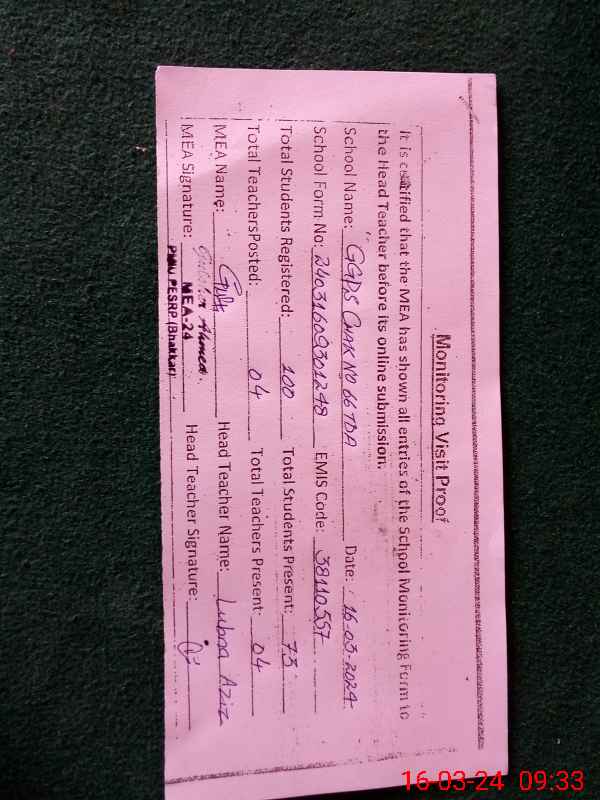 Monitoring Visit Proof
It is certified that the MEA has shown all entries of the School Monitoring Form to
the Head Teacher before its online submission.
School Name: GGPS CHAK NO 66 TDA Date: 16-03-2024
School Form No: 24031609301248 EMIS Code: 38110357
Total Students Registered: 100 Total Students Present: 73
Total TeachersPosted: 04 Total Teachers Present: 04
MEA Name: Head Teacher Name: Lubna Aziz
MEA Signature: Ahmed Head Teacher Signature:
MEA-24
PMIU PESRP (Bhakkar)
16-03-24 09:33